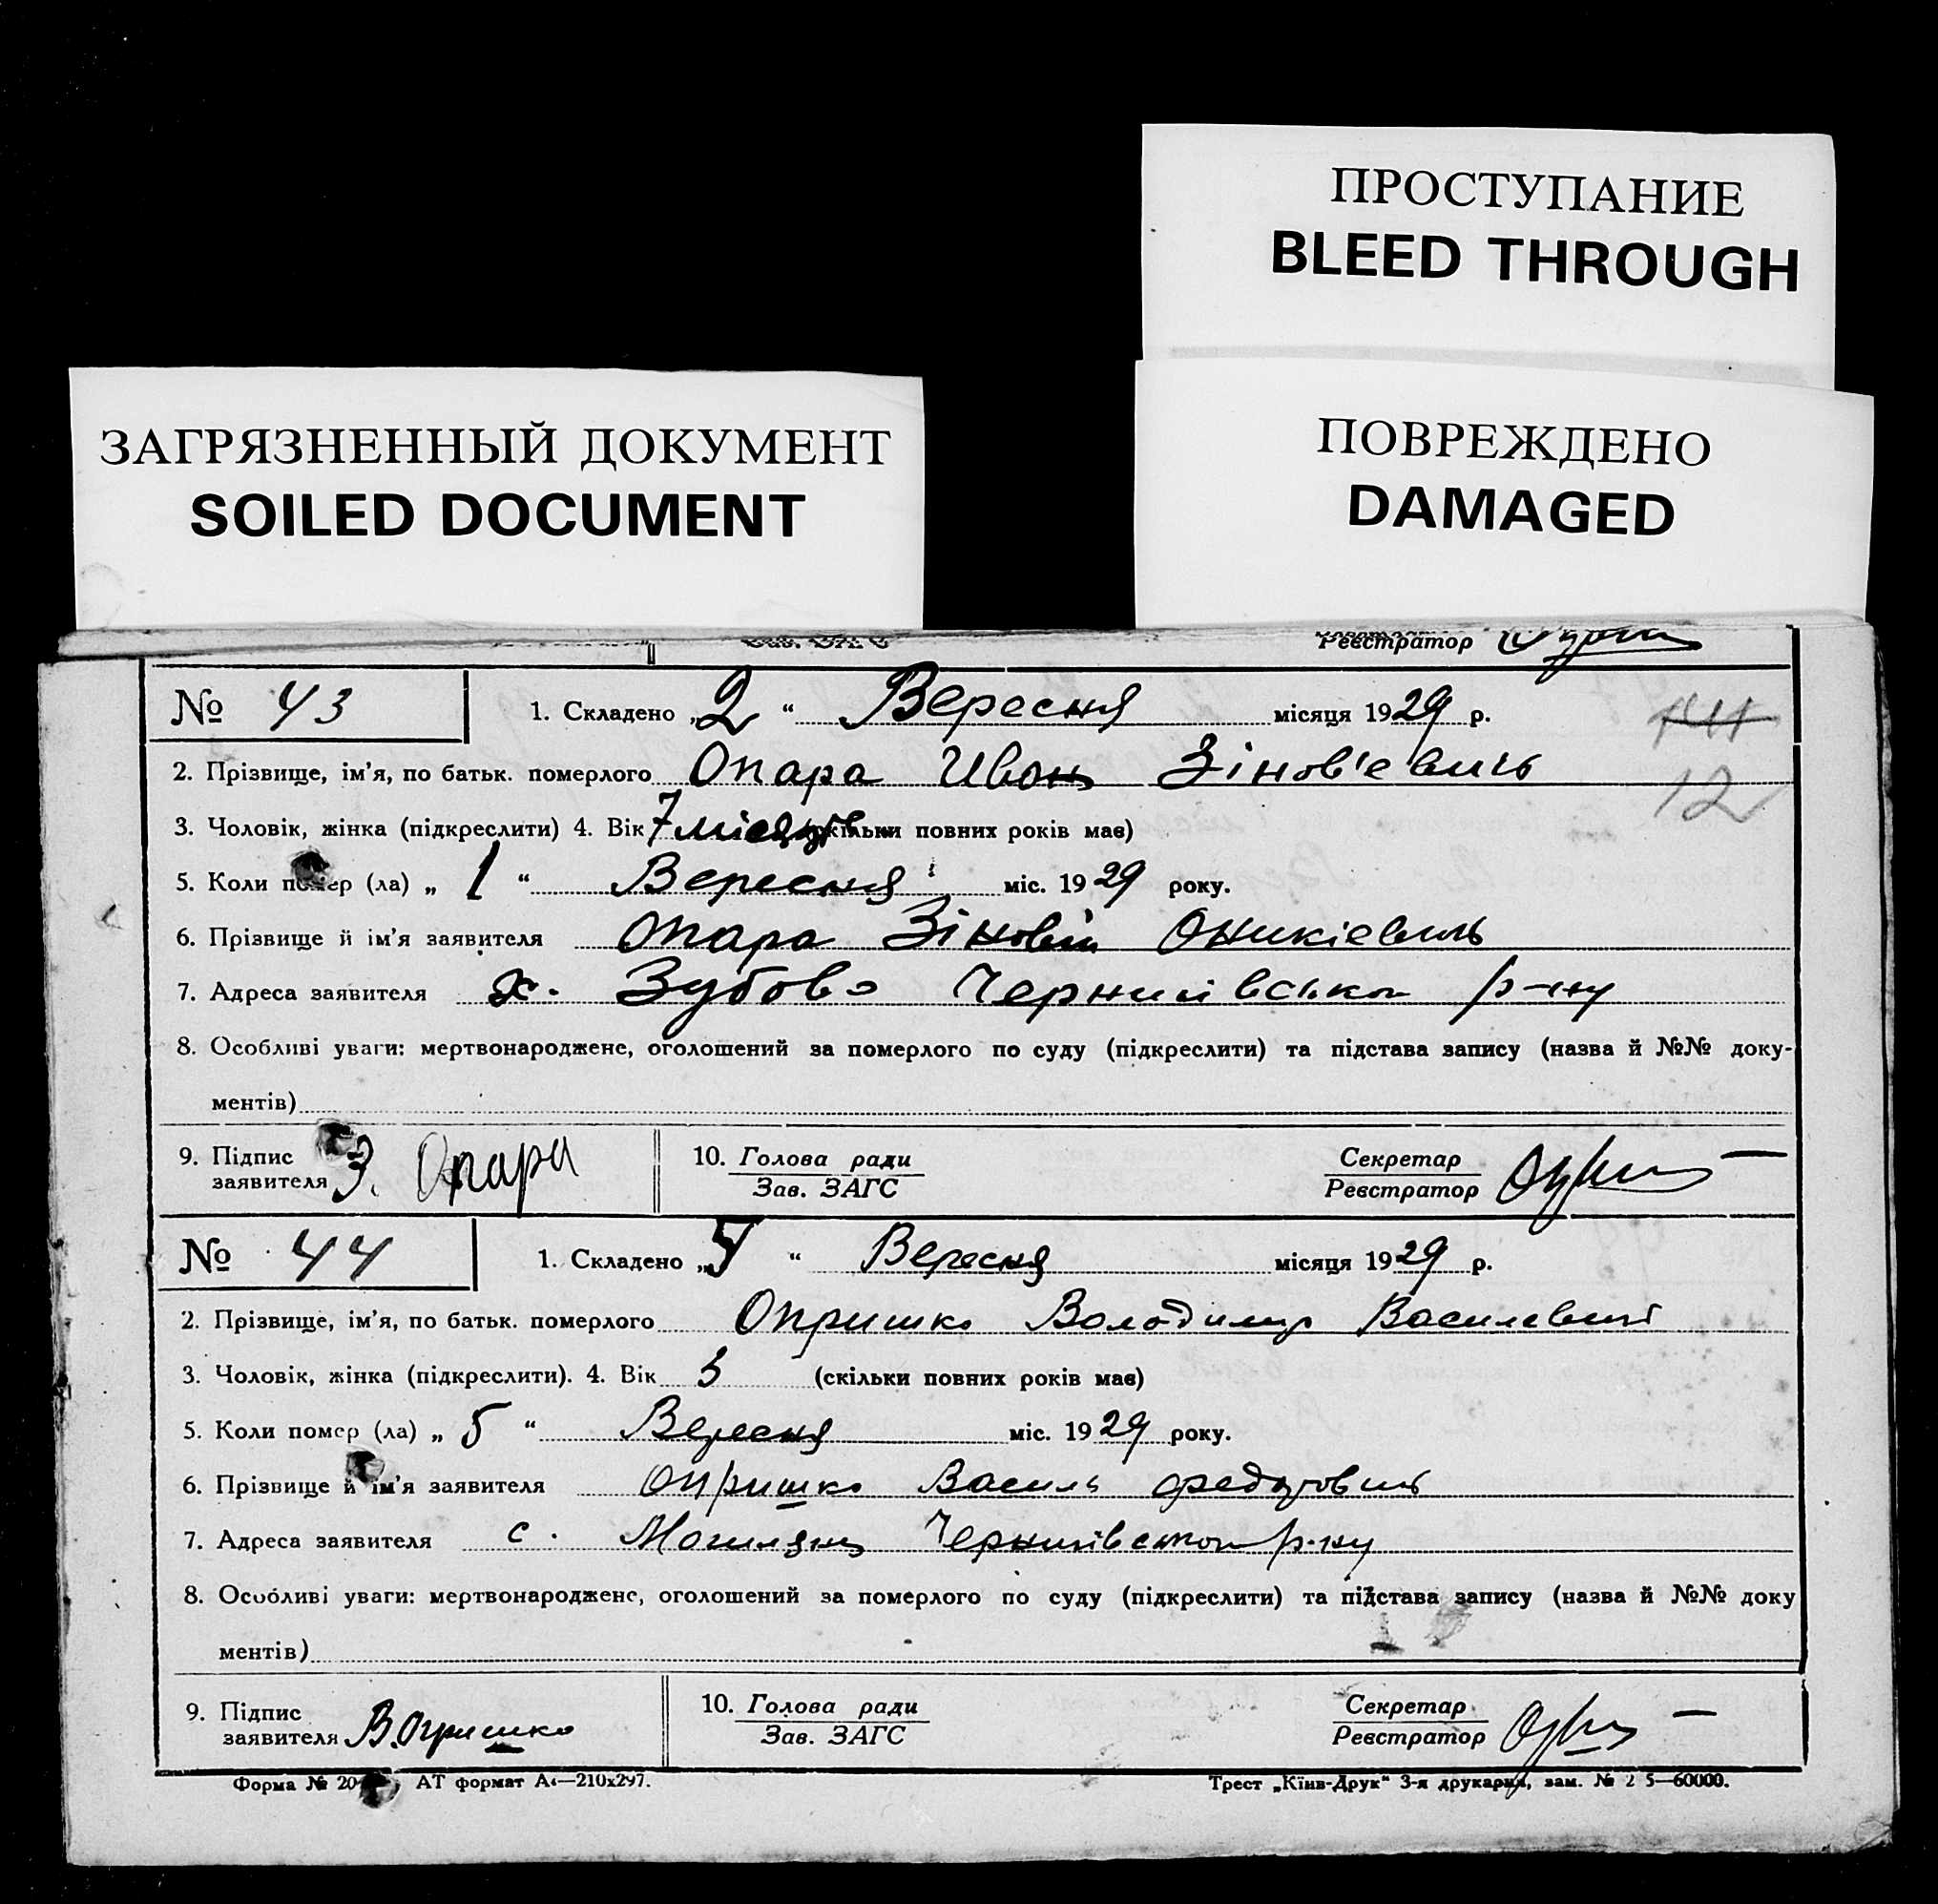 ПРОСТУПАНИЕ
BLEED THROUGH
ЗАГРЯЗНЕННЫЙ ДОКУМЕНТ
SOILED DOCUMENT
ПОВРЕЖДЕНО
DAMAGED
Реєстратор
№ 43 1. Складено „2“ Вересня місяця 1929 р.
2. Прізвище, ім'я, по батьк. померлого Опара Иван Зінов'евичь
12
3. Чоловік, жінка (підкреслити) 4. Вік 7 місяців скільки повних років має)
5. Коли помер (ла) „1“ Вересня міс. 1929 року.
6. Прізвище й ім'я заявителя Опара Зіновій Оникіевичь
7. Адреса заявителя х. Зубово р-ну
8. Особливі уваги: мертвонароджене, оголошений за померлого по суду (підкреслити) та підстава запису (назва й №№ доку-
ментів)
9. Підпис заявителя З. Опара 10. Голова ради Зав. ЗАГС Секретар Реєстратор
№ 44 1. Складено „5“ Вересня місяця 1929 р.
2. Прізвище, ім'я, по батьк. померлого Опришко Володимир Василевич
3. Чоловік, жінка (підкреслити). 4. Вік 3 (скільки повних років має)
5. Коли помер (ла) „5“ Вересня міс. 1929 року.
6. Прізвище й ім'я заявителя Опришко Василь
7. Адреса заявителя с. р-ну
8. Особливі уваги: мертвонароджене, оголошений за померлого по суду (підкреслити) та підстава запису (назва й №№ доку
ментів)
9. Підпис заявителя В. Опришко 10. Голова ради Зав. ЗАГС Секретар Реєстратор
Форма № 20 АТ формат А4—210x297. Трест „Київ-Друк“ 3-я друкарня, зам. № 2 5—60000.